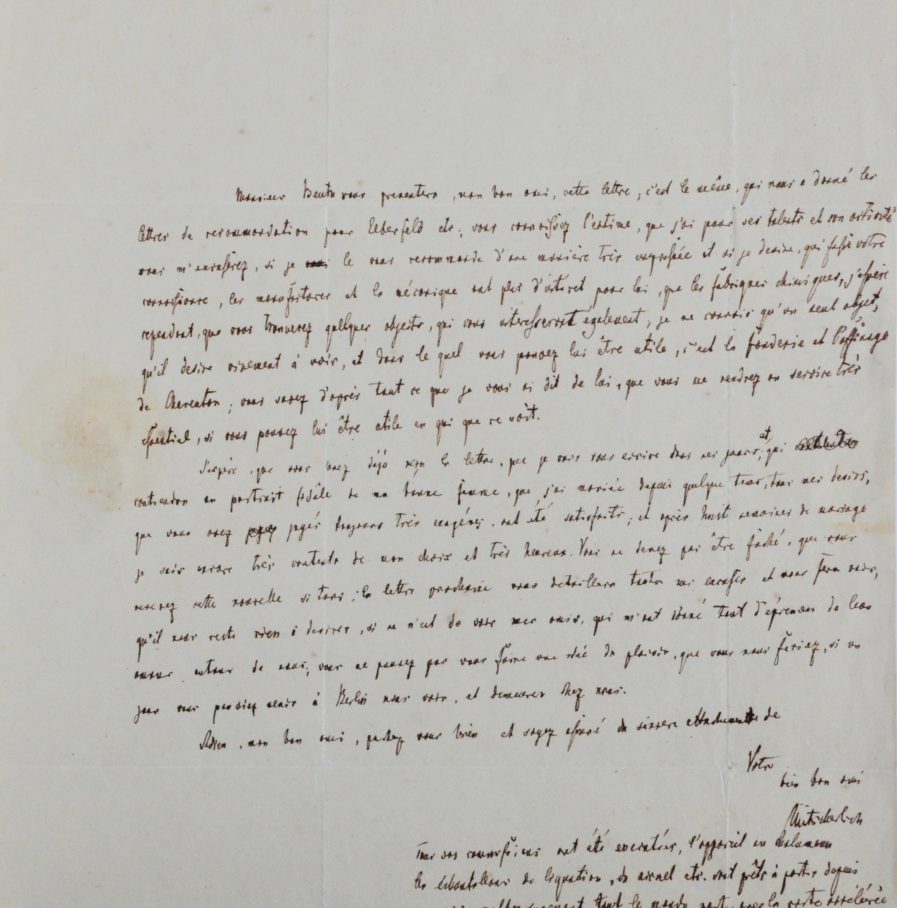 Monsieur Beuth vous presentera, mon bon ami, cette lettre, c'est le même, qui nous a donné les
lettres de recommandation pour Elberfeld etc; vous connoissez l'estime, que j'ai pour ses talents et son activité
vous m'excuserez, si je le vous recommande d'une manière très empressée et si je desire, qu'i fasse votre
connoissance, les manufactures et la mécanique ont plus d'interet pour lui, que les fabriques chimiques, j'espère
cependant, que vous trouverez quelques objects, qui vous interesseront egalement, je ne connois qu'un seul objet,
qu'il desire vivement à voir, et dans le quel vous pouvez lui être utile, c'est la fonderie et l'affinage
de Charenton; vous savez d'après tout ce que je vous ai dit de lui, que vous me rendrez un service très
essentiel, si vous pouvez lui être utile en qui que ce soit.
J'espère, que vous avez déjà reçu la lettre, que je vais vous ecrire dans ces jours, et qui
contiendra un portrait fidèle de ma bonne femme, que j'ai mariée depuis quelque tems, tous mes desirs,
que vous avez jugés toujours très exagérés, ont été satisfaits; et après huit semaines de mariage
je suis encore très contents de mon choix et très heureux. Vous ne devez pas être fâché, que vous
recevez cette nouvelle si tard; la lettre prochaine vous detaillera toutes mes excuses et vous fera voir,
qu'il nous reste rien à desirer, si ce n'est de voir mes amis, qui m'ont donné tant d'épreuves de leur
amour autour de nous, vous ne pouvez pas vous faire une idée du plaisir, que vous nous feriez, si un
jour vous pouviez venir à Berlin nous voir, et demeurer chez nous.
Adieu, mon bon ami, portez vous bien et soyez assuré du sincere attachement de
Votre
bien bon ami
Mitscherlich
Tous vos commissions ont été executées, l'appareil en
les echantillons de liquation, de nickel etc. sont prêts à partir depuis
tout le monde part